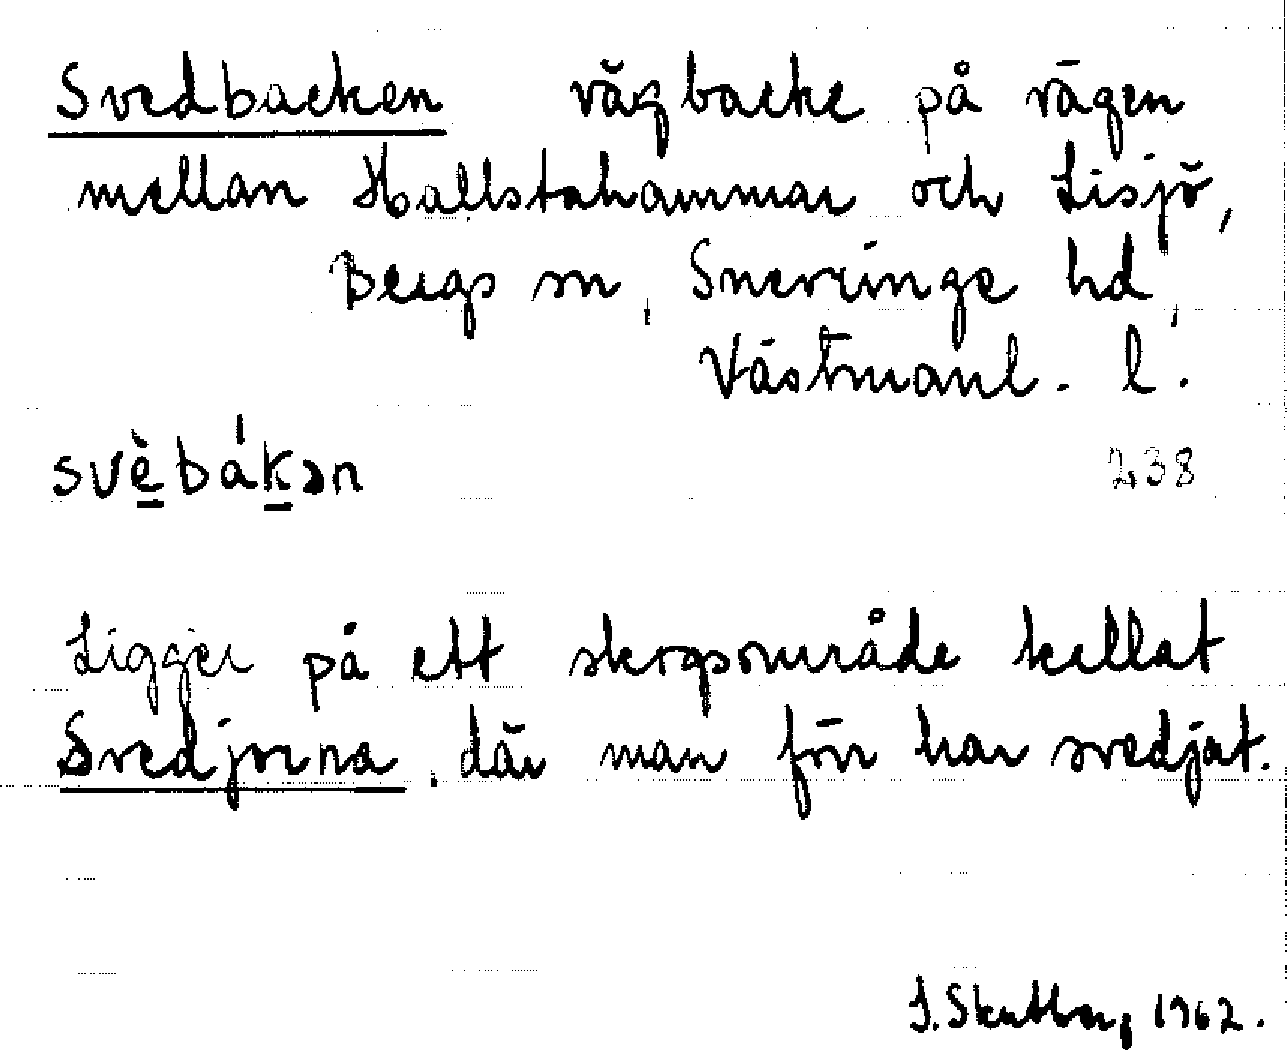 Svedbacken vägbacke på vägen
mellan Hallstahammar och Lisjö,
Bergs sn, Snevringe hd,
Västmanl. l.
svèbákən 238
Ligger på ett skogsområde kallat
Svedjorna, där man förr har svedjat.
1962.